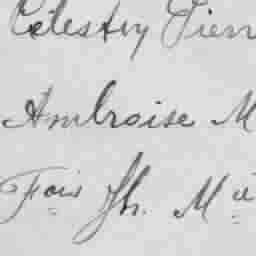 Célestin Pierr
Ambroise M
Fois Jh. Me